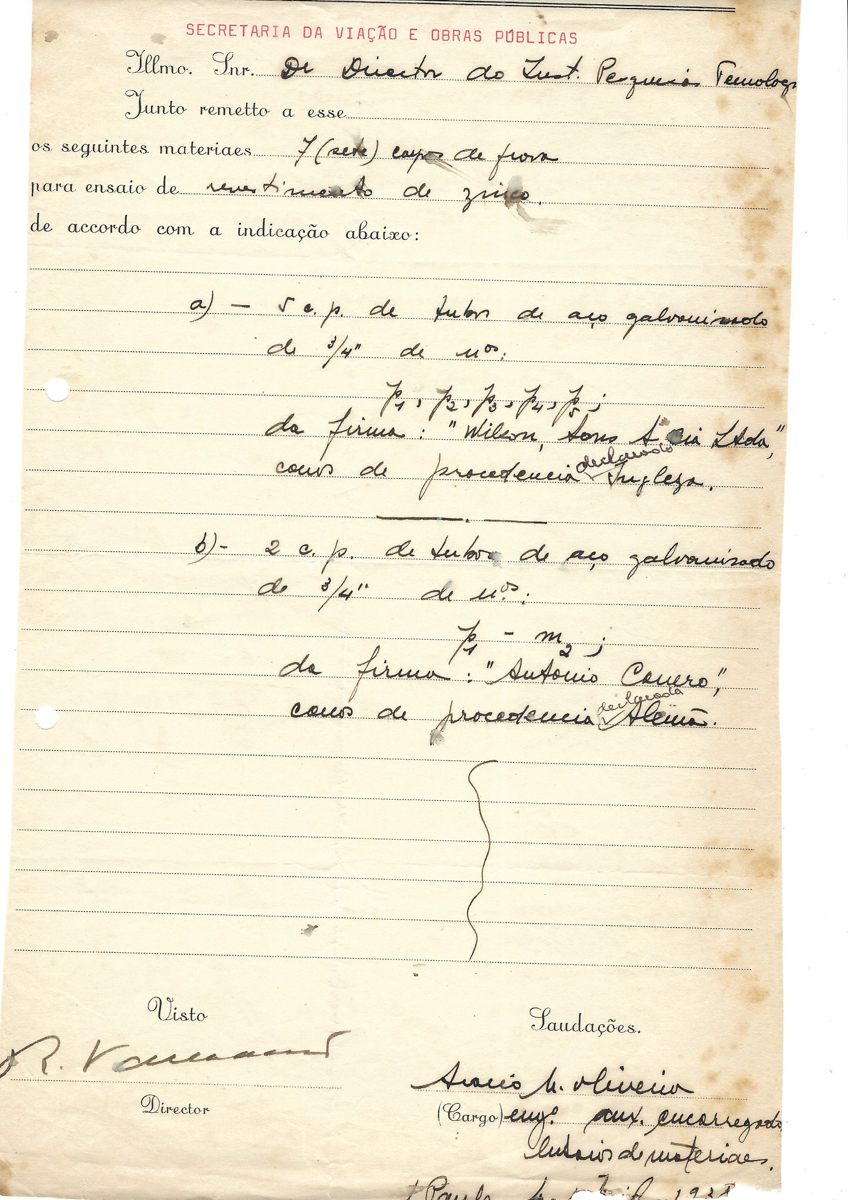 SECRETARIA DA VIAÇÃO E OBRAS PÚBLICAS
Illmo. Snr. Dr Director do Inst. Pesquisas Tecnolog
Junto remetto a esse
os seguintes materiaes 7 (sete) corpos de prova
para ensaio de revestimento de zinco.
de accordo com a indicação abaixo:
a) — 5 c. p. de tubos de aço galvanizado
de 3/4" de nos:
p1, p2, p3, p4, p5;
da firma: "Wilson, Sons & Cia Ltda",
canos de procedencia declarada Ingleza.
b) - 2 c. p. de tubos de aço galvanizado
de 3/4" de nos:
p1 - m2;
da firma: "Antonio Carrero",
canos de procedencia declarada Alemã.
Visto
Saudações.
R.
Director
M. Oliveira
(Cargo) engo. aux. encarregado
Ensaios de materiaes.
S Paulo 4